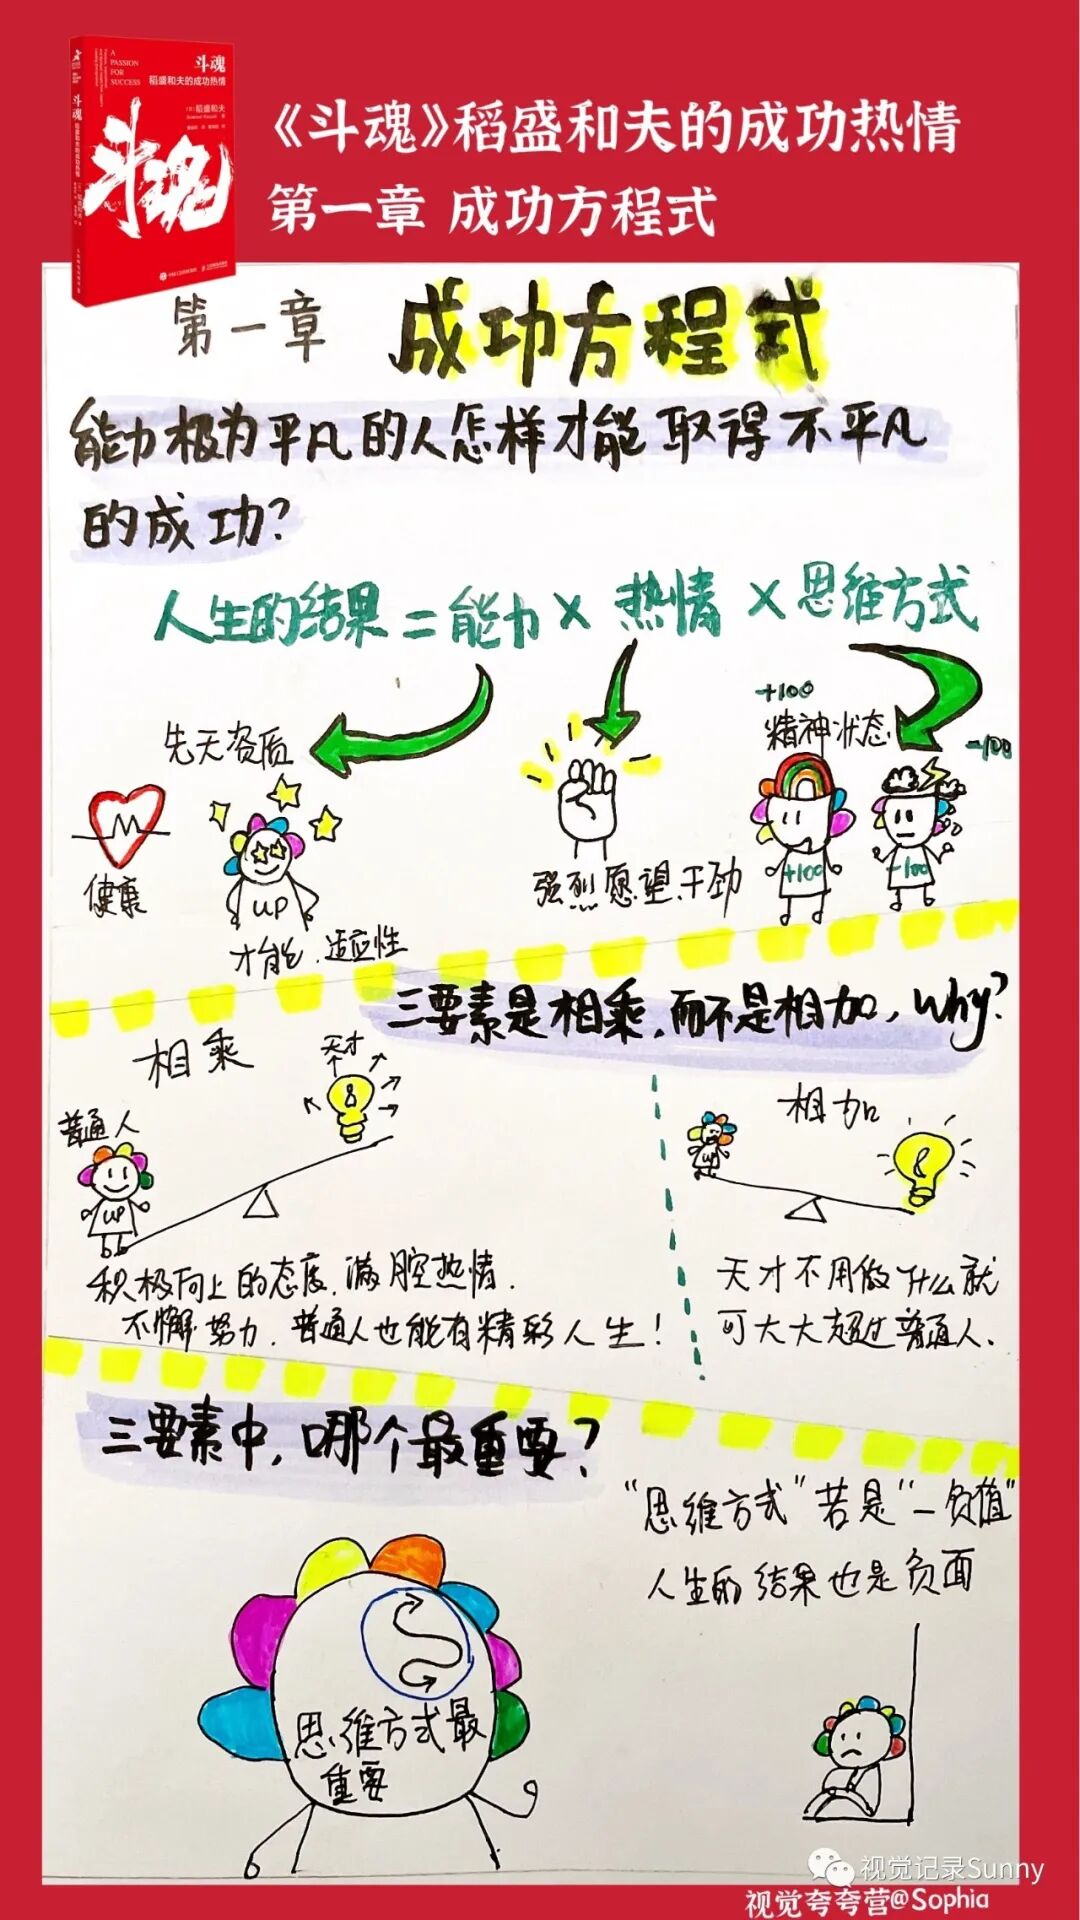 A
PASSION
FOR
SUCCESS
斗魂
稻盛和夫的成功热情
斗魂
《斗魂》稻盛和夫的成功热情
第一章 成功方程式
第一章 成功方程式
能力极为平凡的人怎样才能取得不平凡
的成功?
人生的结果=能力×热情×思维方式
先天资质
+100
精神状态
-100
健康
UP
才能、适应性
强烈愿望、干劲
+100
-100
三要素是相乘,而不是相加,why?
相乘
天才
普通人
UP
积极向上的态度、满腔热情、
不懈努力、普通人也能有精彩人生!
相加
UP
天才不用做什么就
可大大超过普通人、
三要素中,哪个最重要?
"思维方式"若是"-负值"
人生的结果也是负面
思维方式最
重要
视觉记录Sunny
视觉夸夸营@Sophia